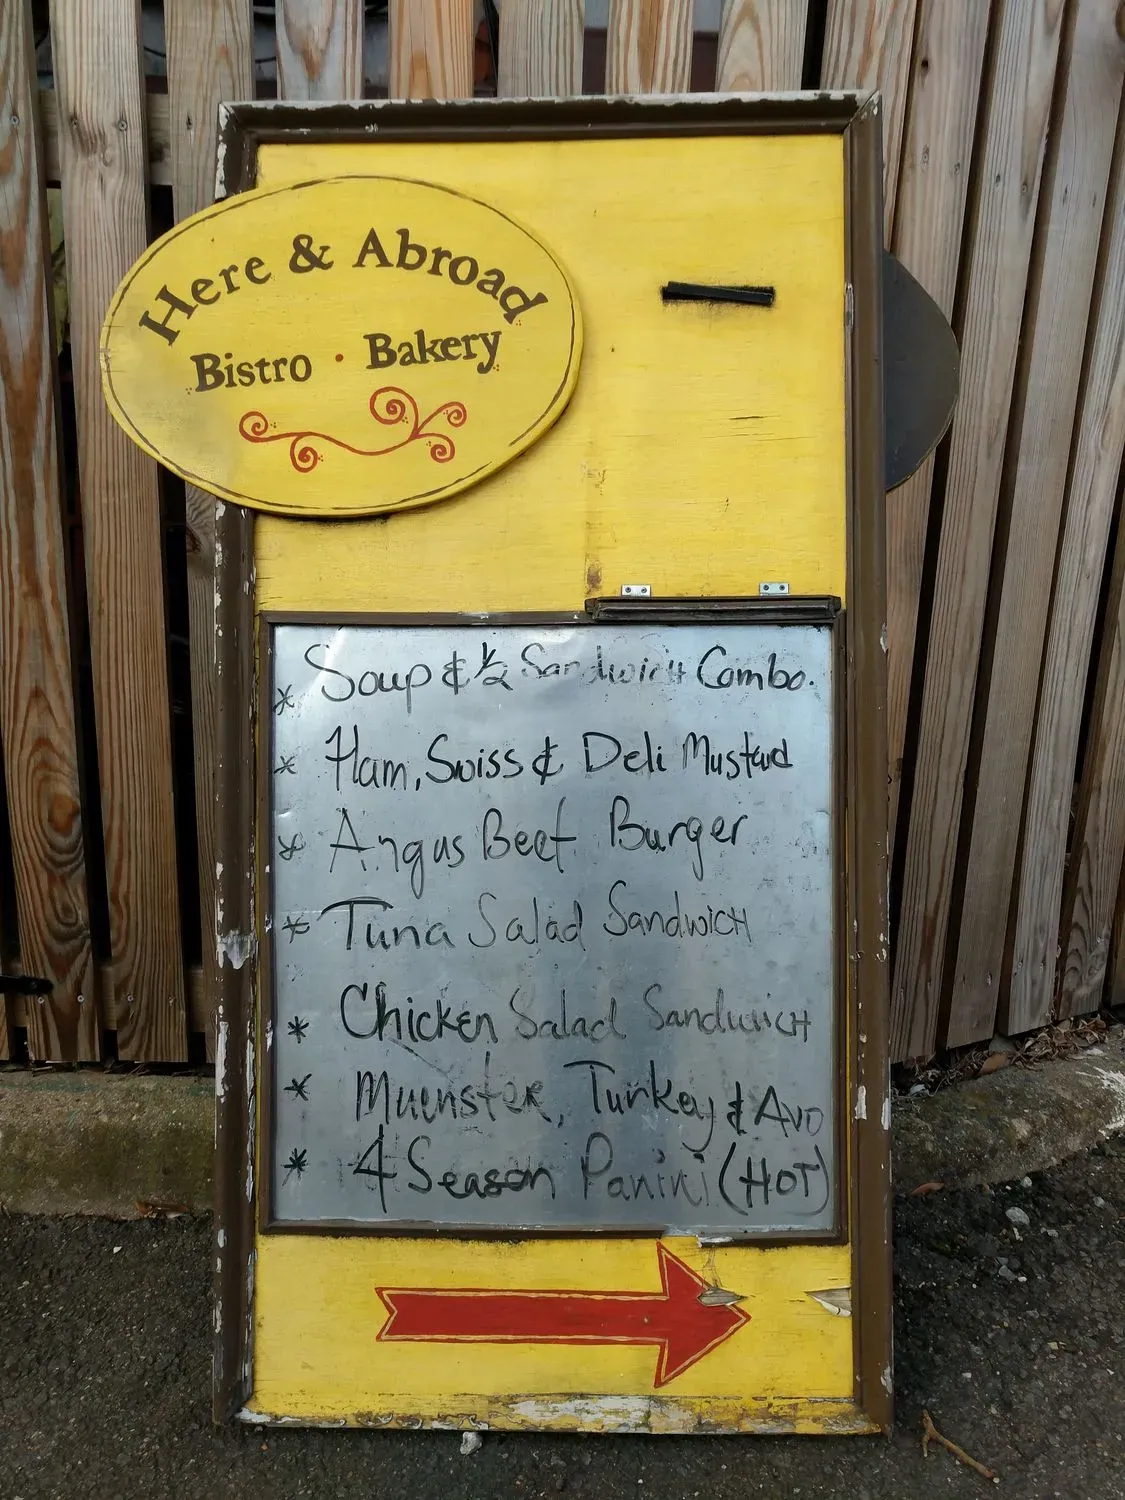 Here & Abroad
Bistro · Bakery
* Soup & ½ Sandwich Combo.
* Ham, Swiss & Deli Mustard
* Angus Beef Burger
* Tuna Salad Sandwich
* Chicken Salad Sandwich
* Muenster, Turkey & Avo
* 4 Season Panini (HOT)